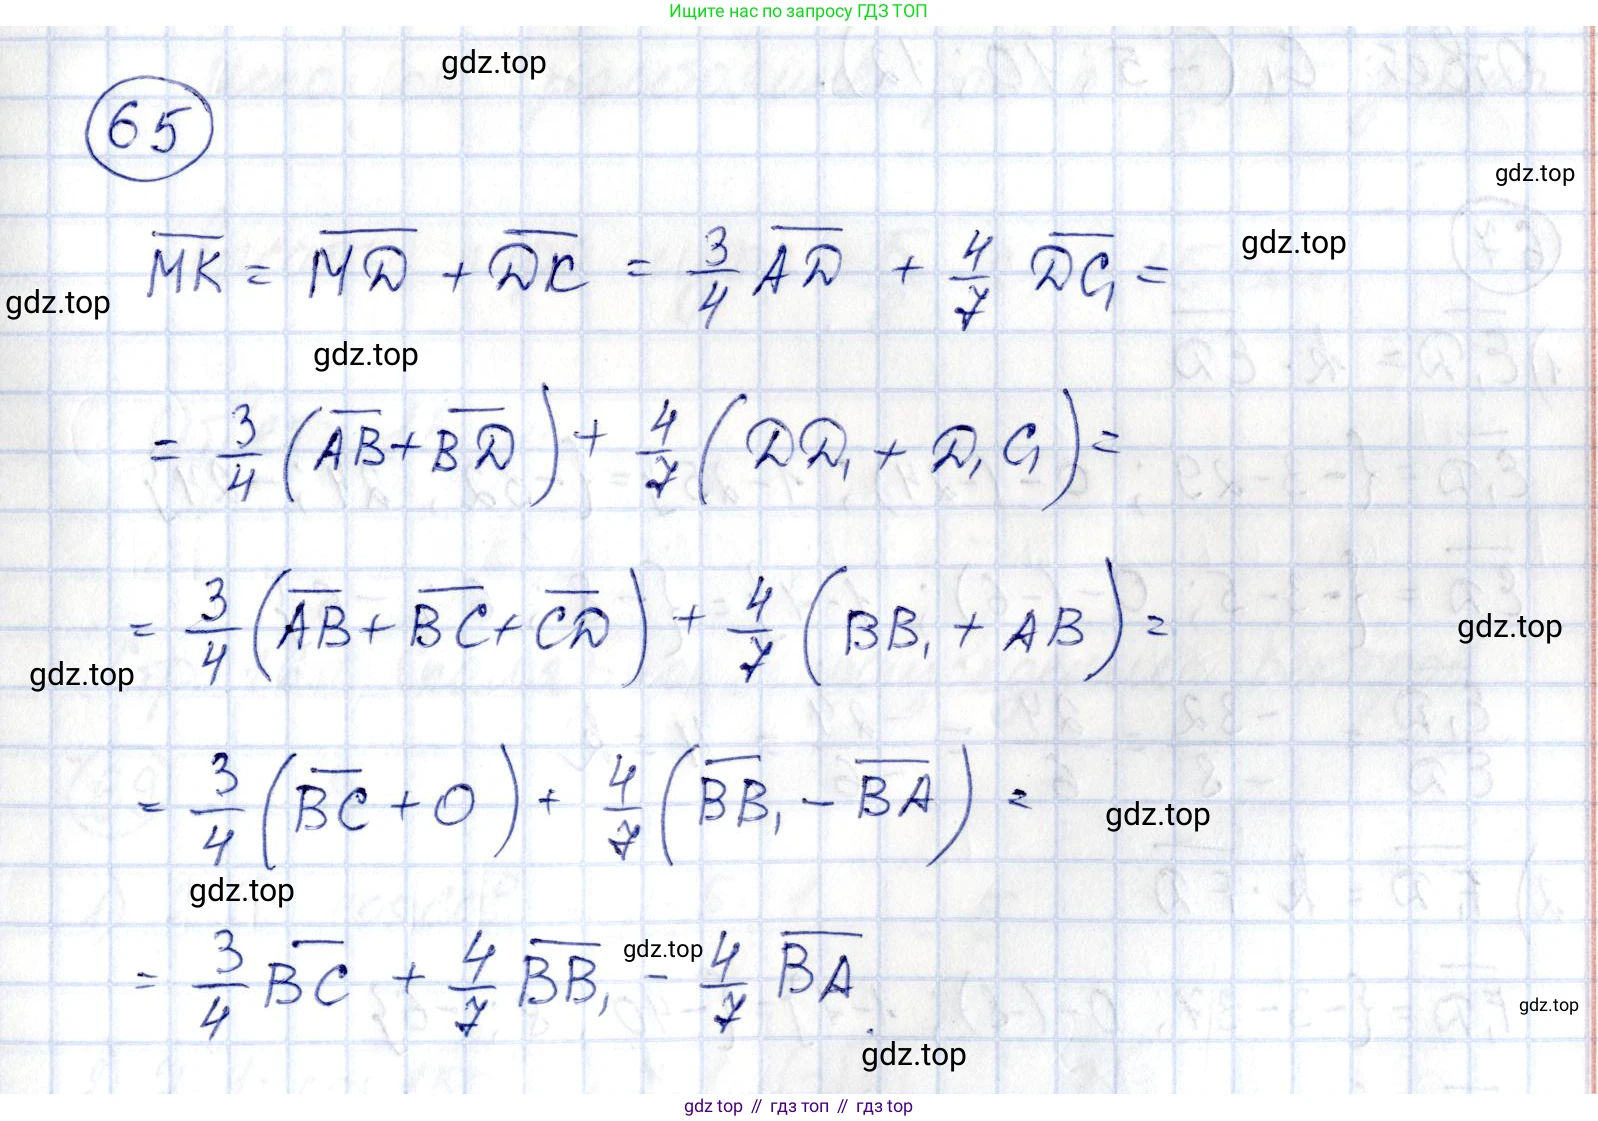 Ищите нас по запросу ГДЗ ТОП
gdz.top
65
gdz.top
MK = MD + DK = 3/4 AD + 4/7 DC₁ =
gdz.top
gdz.top
gdz.top
= 3/4 (AB + BD) + 4/7 (DD₁ + D₁C₁) =
= 3/4 (AB + BC + CD) + 4/7 (BB₁ + AB) =
gdz.top
gdz.top
= 3/4 (BC + 0) + 4/7 (BB₁ - BA) =
gdz.top
gdz.top
= 3/4 BC + 4/7 BB₁ - 4/7 BA.
gdz.top
gdz.top
gdz.top
gdz top // гдз топ // gdz top